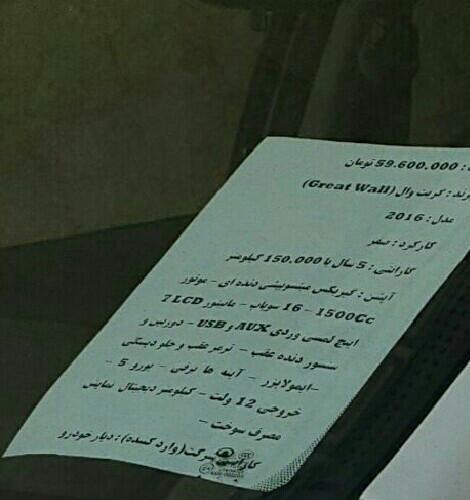 : 59.600.000 تومان
برند : گریت وال (Great Wall)
مدل : 2016
کارکرد : صفر
گارانتی : 5 سال یا 150.000 کیلومتر
آپشن : گیربکس میتسوبیشی دنده ای – موتور
1500Cc – 16 سوپاپ – مانیتور LCD 7
اینچ لمسی وردی AUX و USB – دوربین و
سنسور دنده عقب – ترمز عقب و جلو دیسکی
– ایموبلایزر – آینه ها برقی – یورو 5 –
خروجی 12 ولت – کیلومتر دیجیتال نمایش
مصرف سوخت –
شرکت (وارد کننده) : دیار خودرو